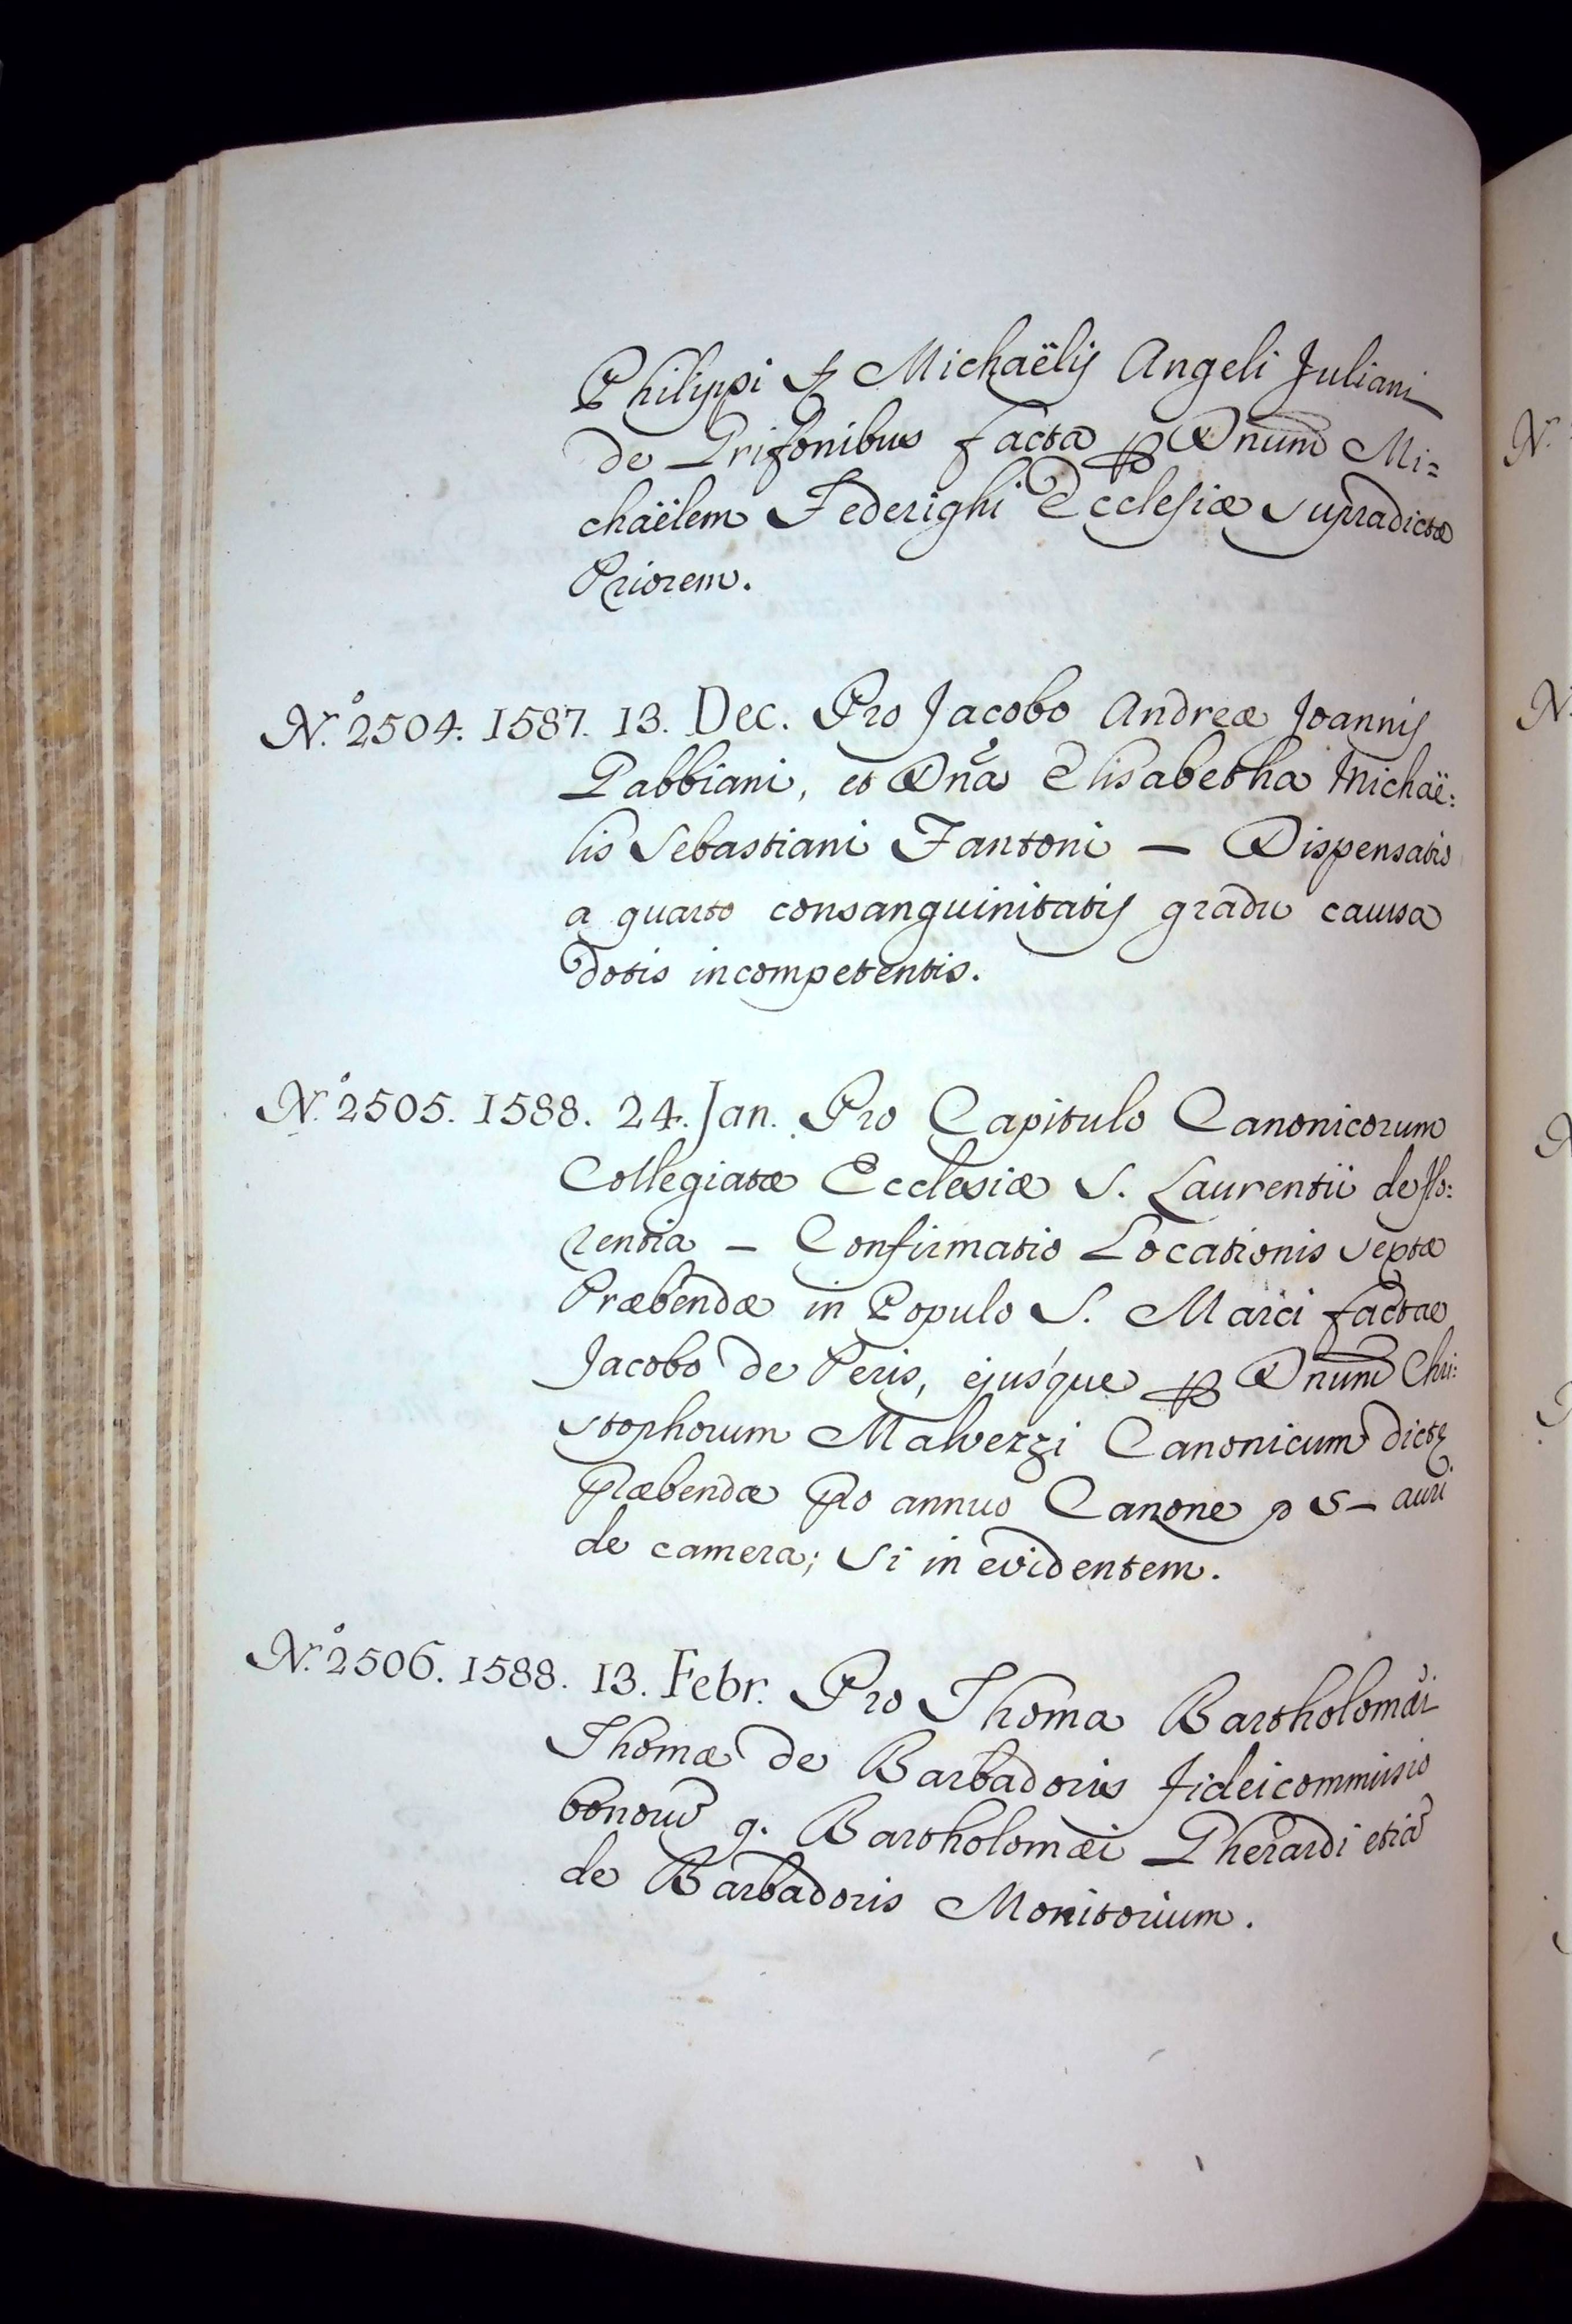 Philippi & Michaëlis Angeli Juliani
de Grifonibus facta p Dnum Mi=
chaëlem Federighi Ecclesiæ supradictæ
Priorem.
N.º 2504. 1587. 13. Dec. Pro Jacobo Andreæ Joannis
Gabbiani, et Dña Elisabetha Michaë:
lis Sebastiani Fantoni — Dispensatio
a quarto consanguinitatis gradu causa
dotis incompetentis.
N.º 2505. 1588. 24. Jan. Pro Capitulo Canonicorum
Collegiatæ Ecclesiæ S. Laurentii de Flo:
rentia — Confirmatio Locationis septæ
Præbendæ in Populo S. Marci factae
Jacobo de Peris, ejusque p Dnum Chri:
stophorum Malvezzi Canonicum dictę
præbendæ pro annuo Canone p S — auri
de camera; Si in evidentem.
N.º 2506. 1588. 13. Febr. Pro Thoma Bartholomæi
Thomæ de Barbadoris fideicommisio
bonorũ q. Bartholomæi Gherardi etiã
de Barbadoris Monitorium.
N.
N.